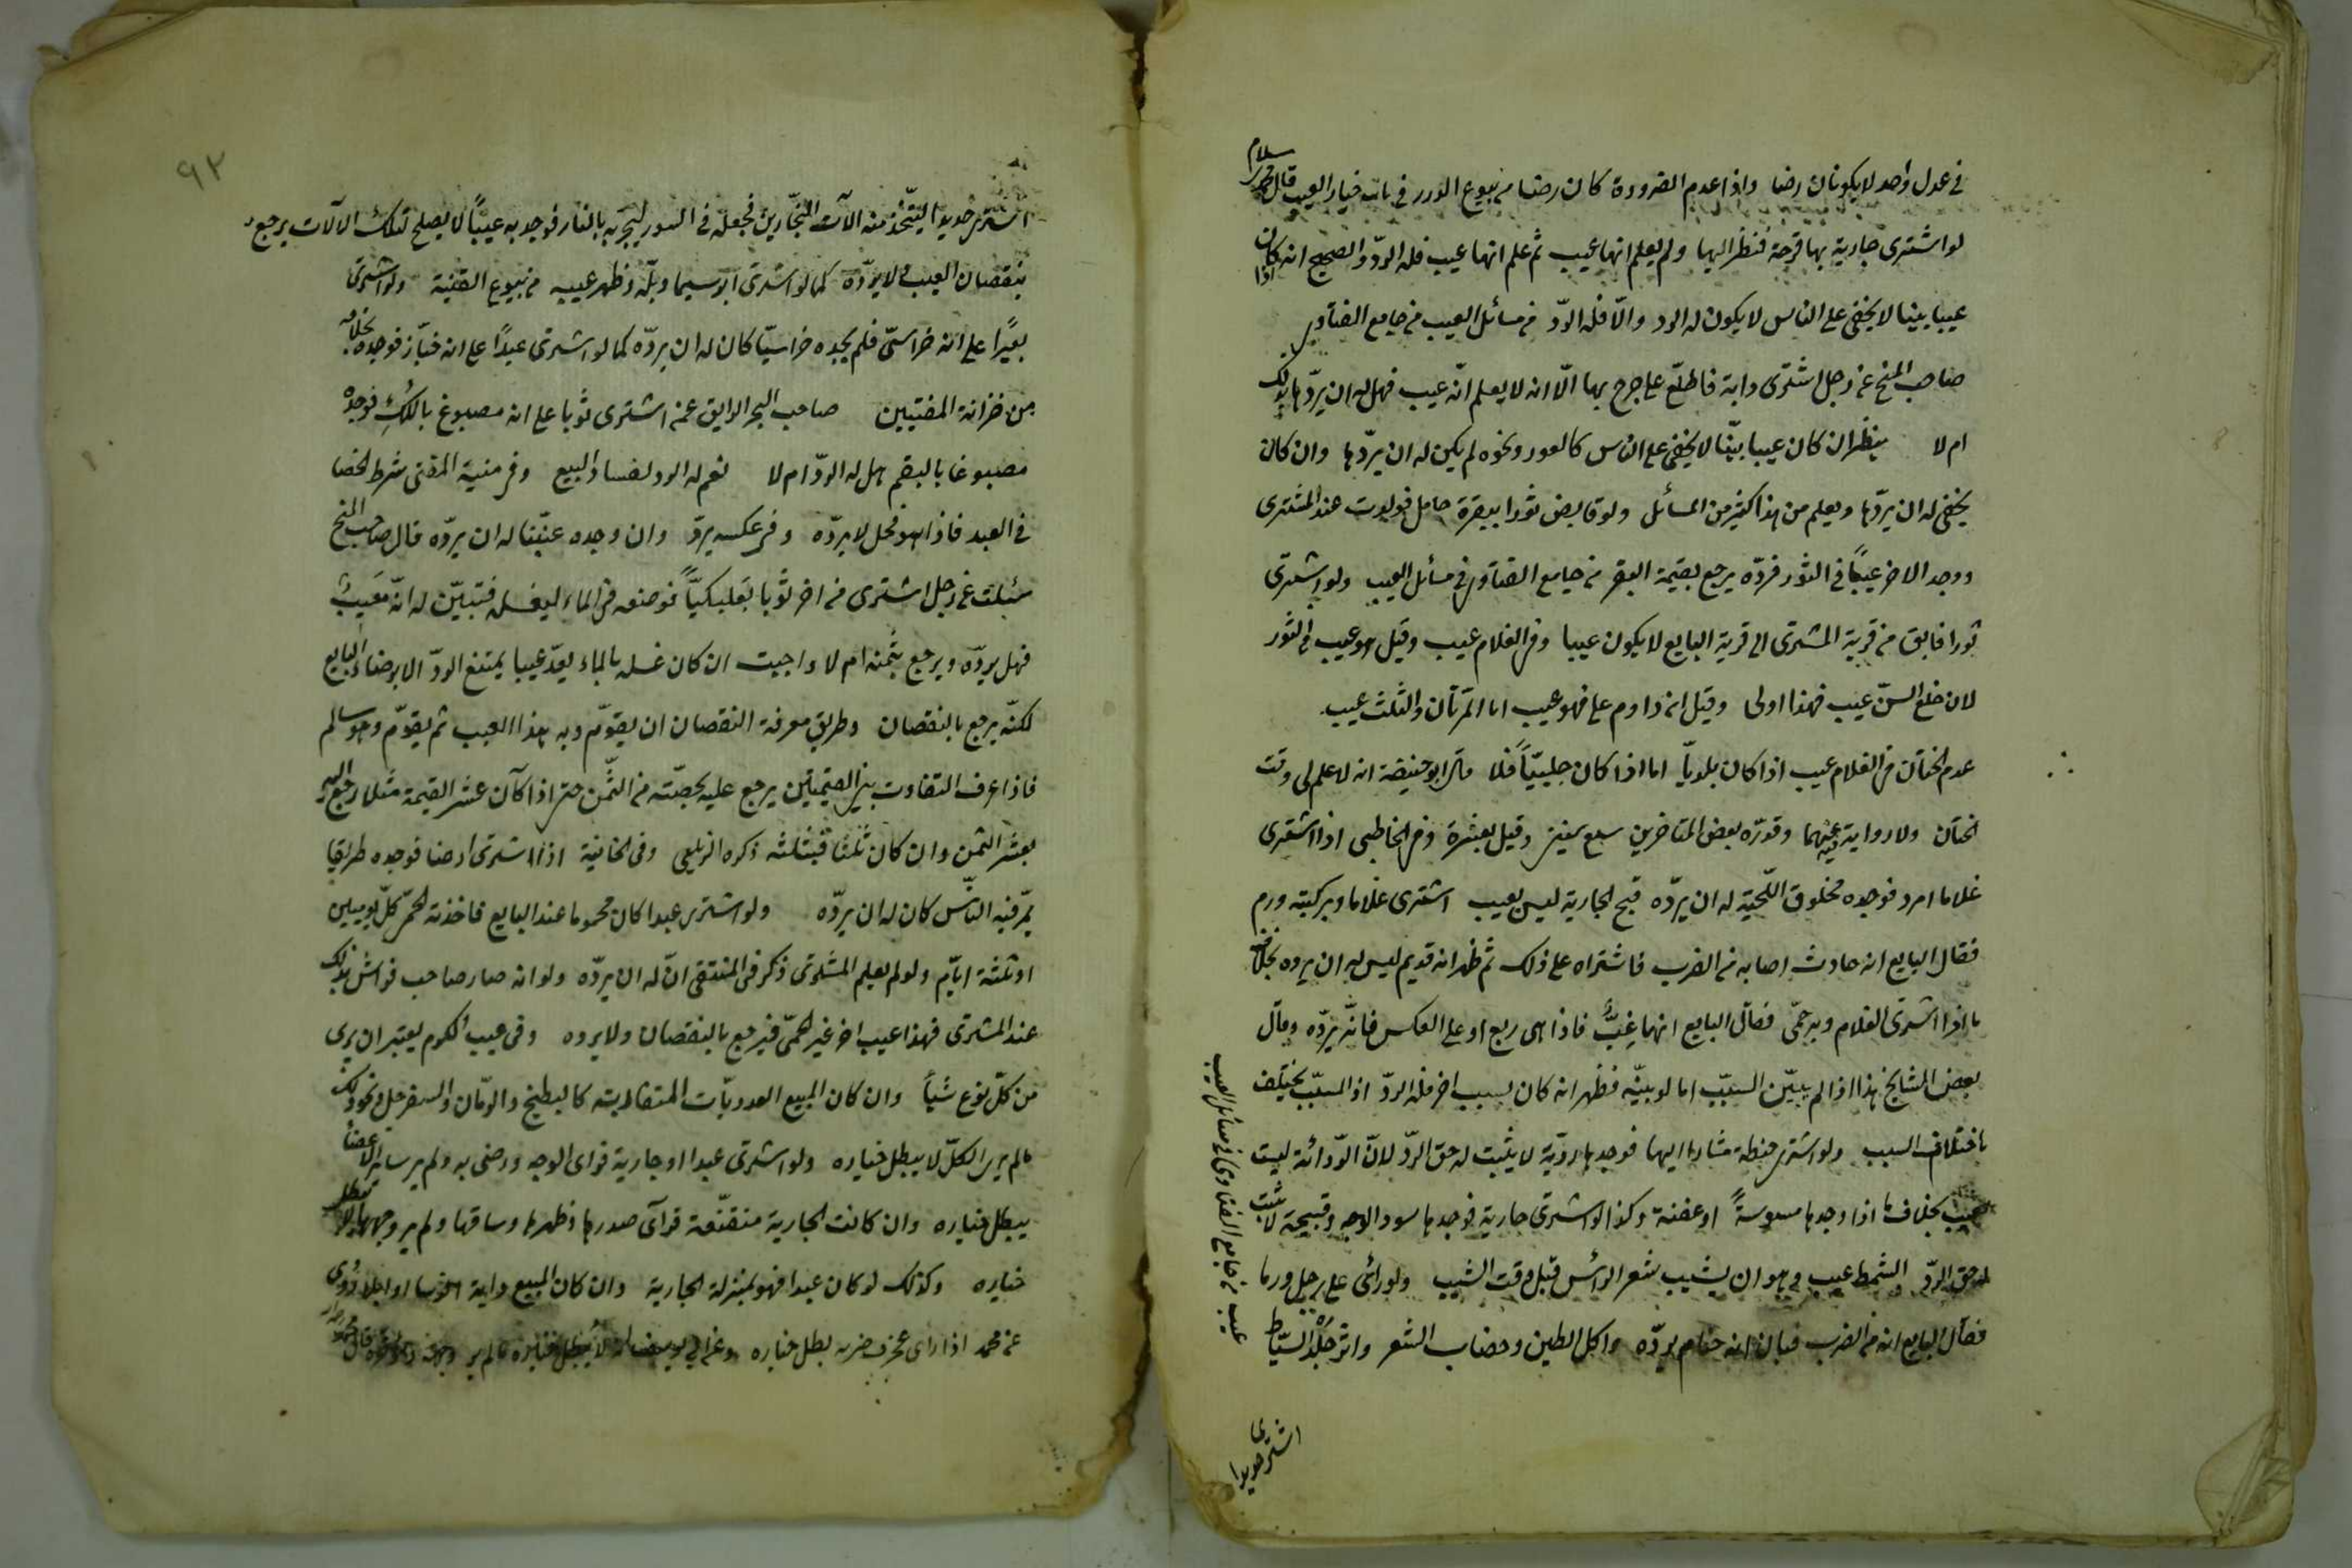 في عدل واحد لا يكونان رضا واذا عدم الضرورة كان رضا من بيوع الدرر في باب خيار العيب قال
لو اشترى جارية بها قرحة فنظر اليها ولم يعلم انها عيب ثم علم انها عيب فله الردّ والصحيح انه اذا كان
عيبا بينا لا يخفى على الناس لا يكون له الرد والّا فله الردّ من مسائل العيب من جامع الفتاوى
صاحب المنح عن رجل اشترى دابة فاطلع على جرح بها الّا انه لا يعلم انّه عيب فهل له ان يردّها بذلك
ام لا ينظر ان كان عيبا بيّنا لا يخفى على الناس كالعور ونحوه لم يكن له ان يردّها وان كان
يخفى له ان يردّها ويعلم من هذا كثير من المسائل ولو قايض ثورا ببقرة حامل فولدت عند المشترى
ووجد الاخر عيبًا في الثور فردّه يرجع بقيمة البقر من جامع الفتاوى في مسائل العيب ولو اشترى
ثورا فابق من قرية المشترى الى قرية البايع لا يكون عيبا وفى الغلام عيب وقيل هو عيب فى الثور
لان خلع السنّ عيب فهذا اولى وقيل ان داوم على فهو عيب اما المرتان والثلث عيب
عدم الختان فى الغلام عيب اذا كان بلديّا اما اذا كان جليبيّاً فلا قال ابو حنيفة انه لا علم لى وقت
الختان ولا رواية عنهما وقدّره بعض المتاخرين سبع سنين وقيل بعشرة وفى الخاطبى اذا اشترى
غلاما امرد فوجده محلوق اللّحية له ان يردّه قبح الجارية ليس بعيب اشترى غلاما وبركبته ورم
فقال البايع انه حادث اصابه من الضرب فاشتراه على ذلك ثم ظهر انه قديم ليس له ان يرده بخلاف
ما اذا اشترى الغلام وبه حمّى فقال البايع انها غِبٌّ فاذا هى ربع او على العكس فانّه يردّه وقال
بعض المشايخ هذا اذا لم يبيّن السبب اما لو بيّنه فظهر انه كان بسبب اخر فله الردّ اذ السبب يختلف
باختلاف السبب ولو اشترى حنطة مشارا اليها فوجدها رديّة لا يثبت له حق الردّ لانّ الرّدائة ليست
بعيب بخلاف ما اذا وجدها مسوسةً او عفنة وكذا لو اشترى جارية فوجدها سود الوجه وقبيحة لا يثبت
له حق الردّ الشمط عيب وهو ان يشيب شعر الرأس قبل وقت الشيب ولو رأى على رجل ورما
فقال البايع انه من الضرب فبان انه جذام يردّه واكل الطين وخضاب الشعر واثر جلدة السيّاط
عيب من جامع الفتاوى فى مسائل العيب
اشترى حديدا
٩٢
اشترى حديدا ليتّخذ منه الآت النجّارين فجعله فى الكور ليجرّبه بالنار فوجد به عيبًا لا يصلح لتلك الالات يرجع
بنقصان العيب ولا يردّه كما لو اشترى ابريسيما وبلّه وظهر عيبه من بيوع القنية ولو اشترى
بعيرًا على انه خراسىّ فلم يجده خراسيّا كان له ان يردّه كما لو اشترى عبدًا على انه خبّاز فوجده بخلافه
من خزانة المفتيين صاحب البحر الرايق عمن اشترى ثوبا على انه مصبوغ باللكِّ فوجده
مصبوغا بالبقم هل له الردّ ام لا نعم له الرد لفساد البيع وفى منية المفتى شرط الخصا
فى العبد فاذا هو فحل لا يردّه وفى عكسه يردّ وان وجده عنّينا له ان يردّه قال صاحب المنح
سئلت عن رجل اشترى من اخر ثوبا بعلبكيّاً فوضعه فى الماء ليغسله فتبيّن له انّه معيب
فهل يردّه ويرجع بثمنه ام لا واجبت ان كان غسله بالماء يعدّ عيبا يمتنع الردّ الا برضاء البايع
لكنّه يرجع بالنقصان وطريق معرفة النقصان ان يقوّم وبه هذا العيب ثم يقوّم وهو سالم
فاذا عرف التفاوت بين القيمتين يرجع عليه بحصّته من الثّمن حتى اذا كان عشر القيمة مثلا رجع اليه
بعشر الثمن وان كان ثلثا فبثلثه ذكره الزيلعى وفى الخانية اذا اشترى ارضا فوجده طريقا
يمّر فيه النّاس كان له ان يردّه ولو اشترى عبدا كان محموما عند البايع فاخذته الحمّى كلّ يومين
او ثلثة ايّام ولو لم يعلم المشترى ذكر فى المنتقى انّ له ان يردّه ولو انه صار صاحب فراش بذلك
عند المشترى فهذا عيب اخر غير الحمّى فيرجع بالنقصان ولا يرده وفى عيب الكرم يعتبر ان يرى
من كلّ نوع شيأ وان كان المبيع العدديّات المتفاوتة كالبطيخ والرمّان والسفرجل ونحو ذلك
ما لم ير الكلّ لا يبطل خياره ولو اشترى عبدا او جارية فراى الوجه ورضى به ولم ير ساير الاعضاء
يبطل خياره وان كانت الجارية متقنّعة فرآى صدرها وظهرها وساقها ولم ير وجهها لا يبطل
خياره وكذلك لو كان عبدا فهو بمنزلة الجارية وان كان المبيع دابة
عن محمد اذا راى عجزه بطل خياره وعن ابى يوسف انه لا يبطل خياره ما لم ير وجهه